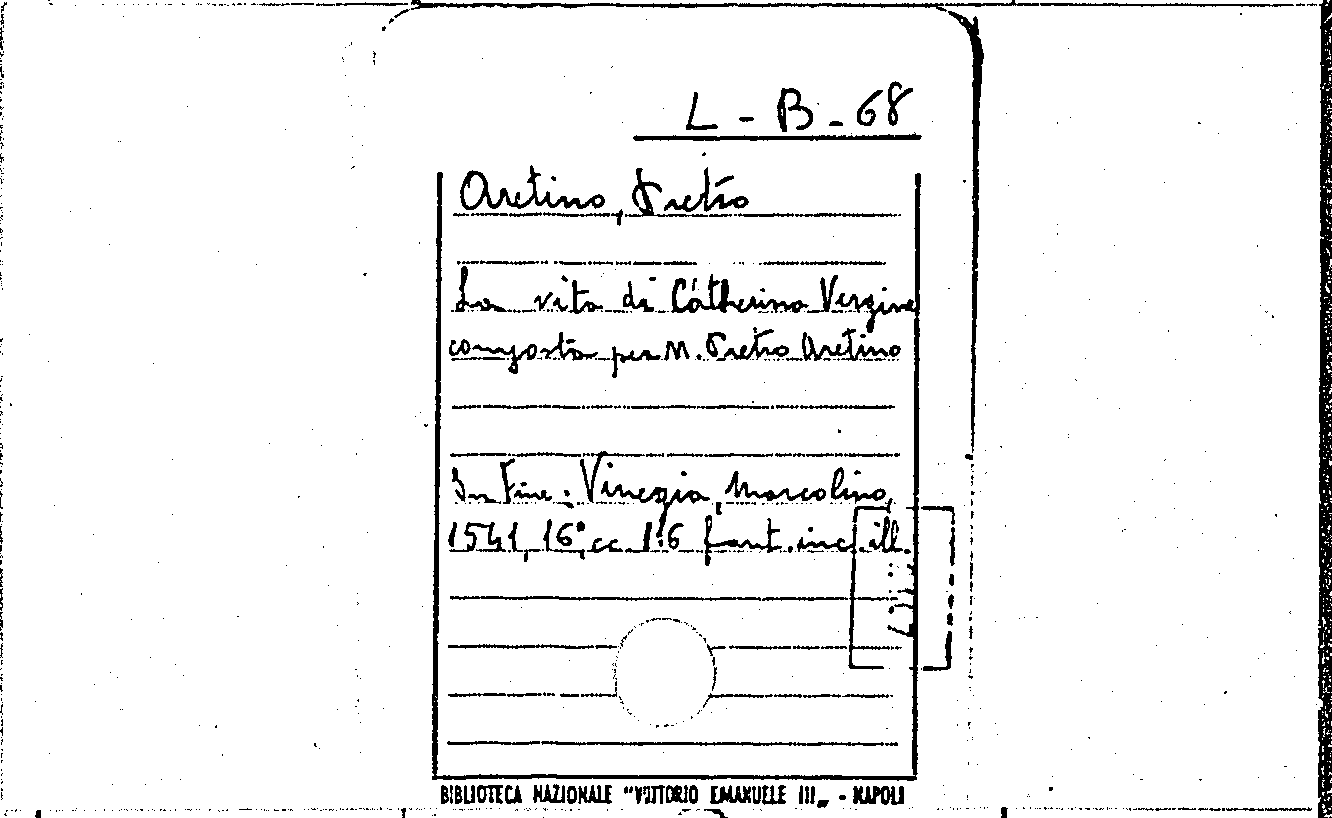 L - B - 68
Aretino, Pietro
La vita di Catherina Vergine
composta per M. Pietro Aretino
In Fine: Vinegia, Marcolino,
1541, 16°, cc. 116 front. inc. ill.
BIBLIOTECA NAZIONALE "VITTORIO EMANUELE III„ - NAPOLI